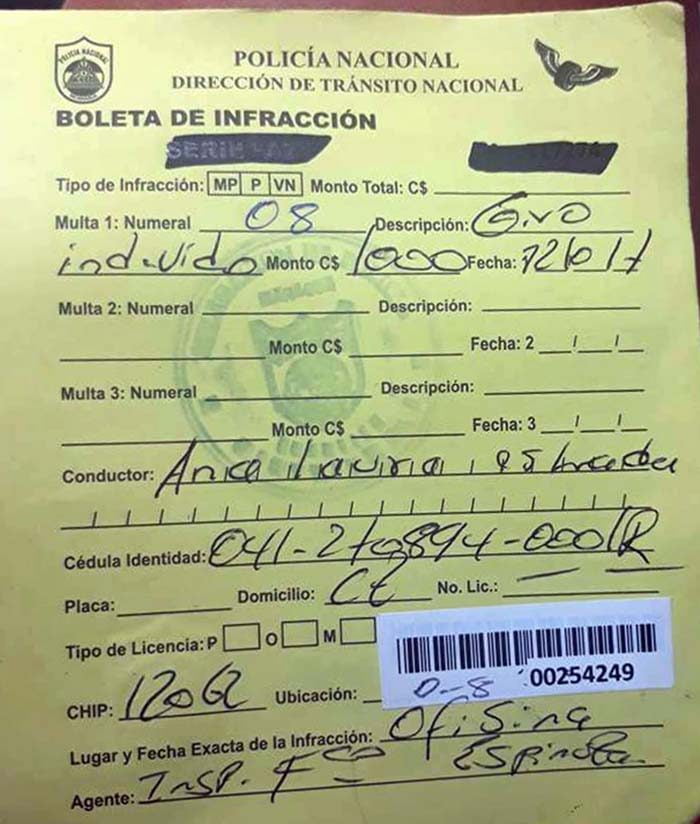 POLICÍA NACIONAL
DIRECCIÓN DE TRÁNSITO NACIONAL
BOLETA DE INFRACCIÓN
Tipo de Infracción: MP P VN Monto Total: C$
Multa 1: Numeral 08 Descripción: Giro
indevido Monto C$ 1000 Fecha:
Multa 2: Numeral Descripción:
Monto C$ Fecha: 2 / /
Multa 3: Numeral Descripción:
Monto C$ Fecha: 3 / /
Conductor: Ana
Cédula Identidad: 041-270894-0001R
Placa: Domicilio: No. Lic.:
Tipo de Licencia: P O M
00254249
CHIP: Ubicación: 0-8
Lugar y Fecha Exacta de la Infracción: Ofisina
Agente: Insp. Fco Espinoza